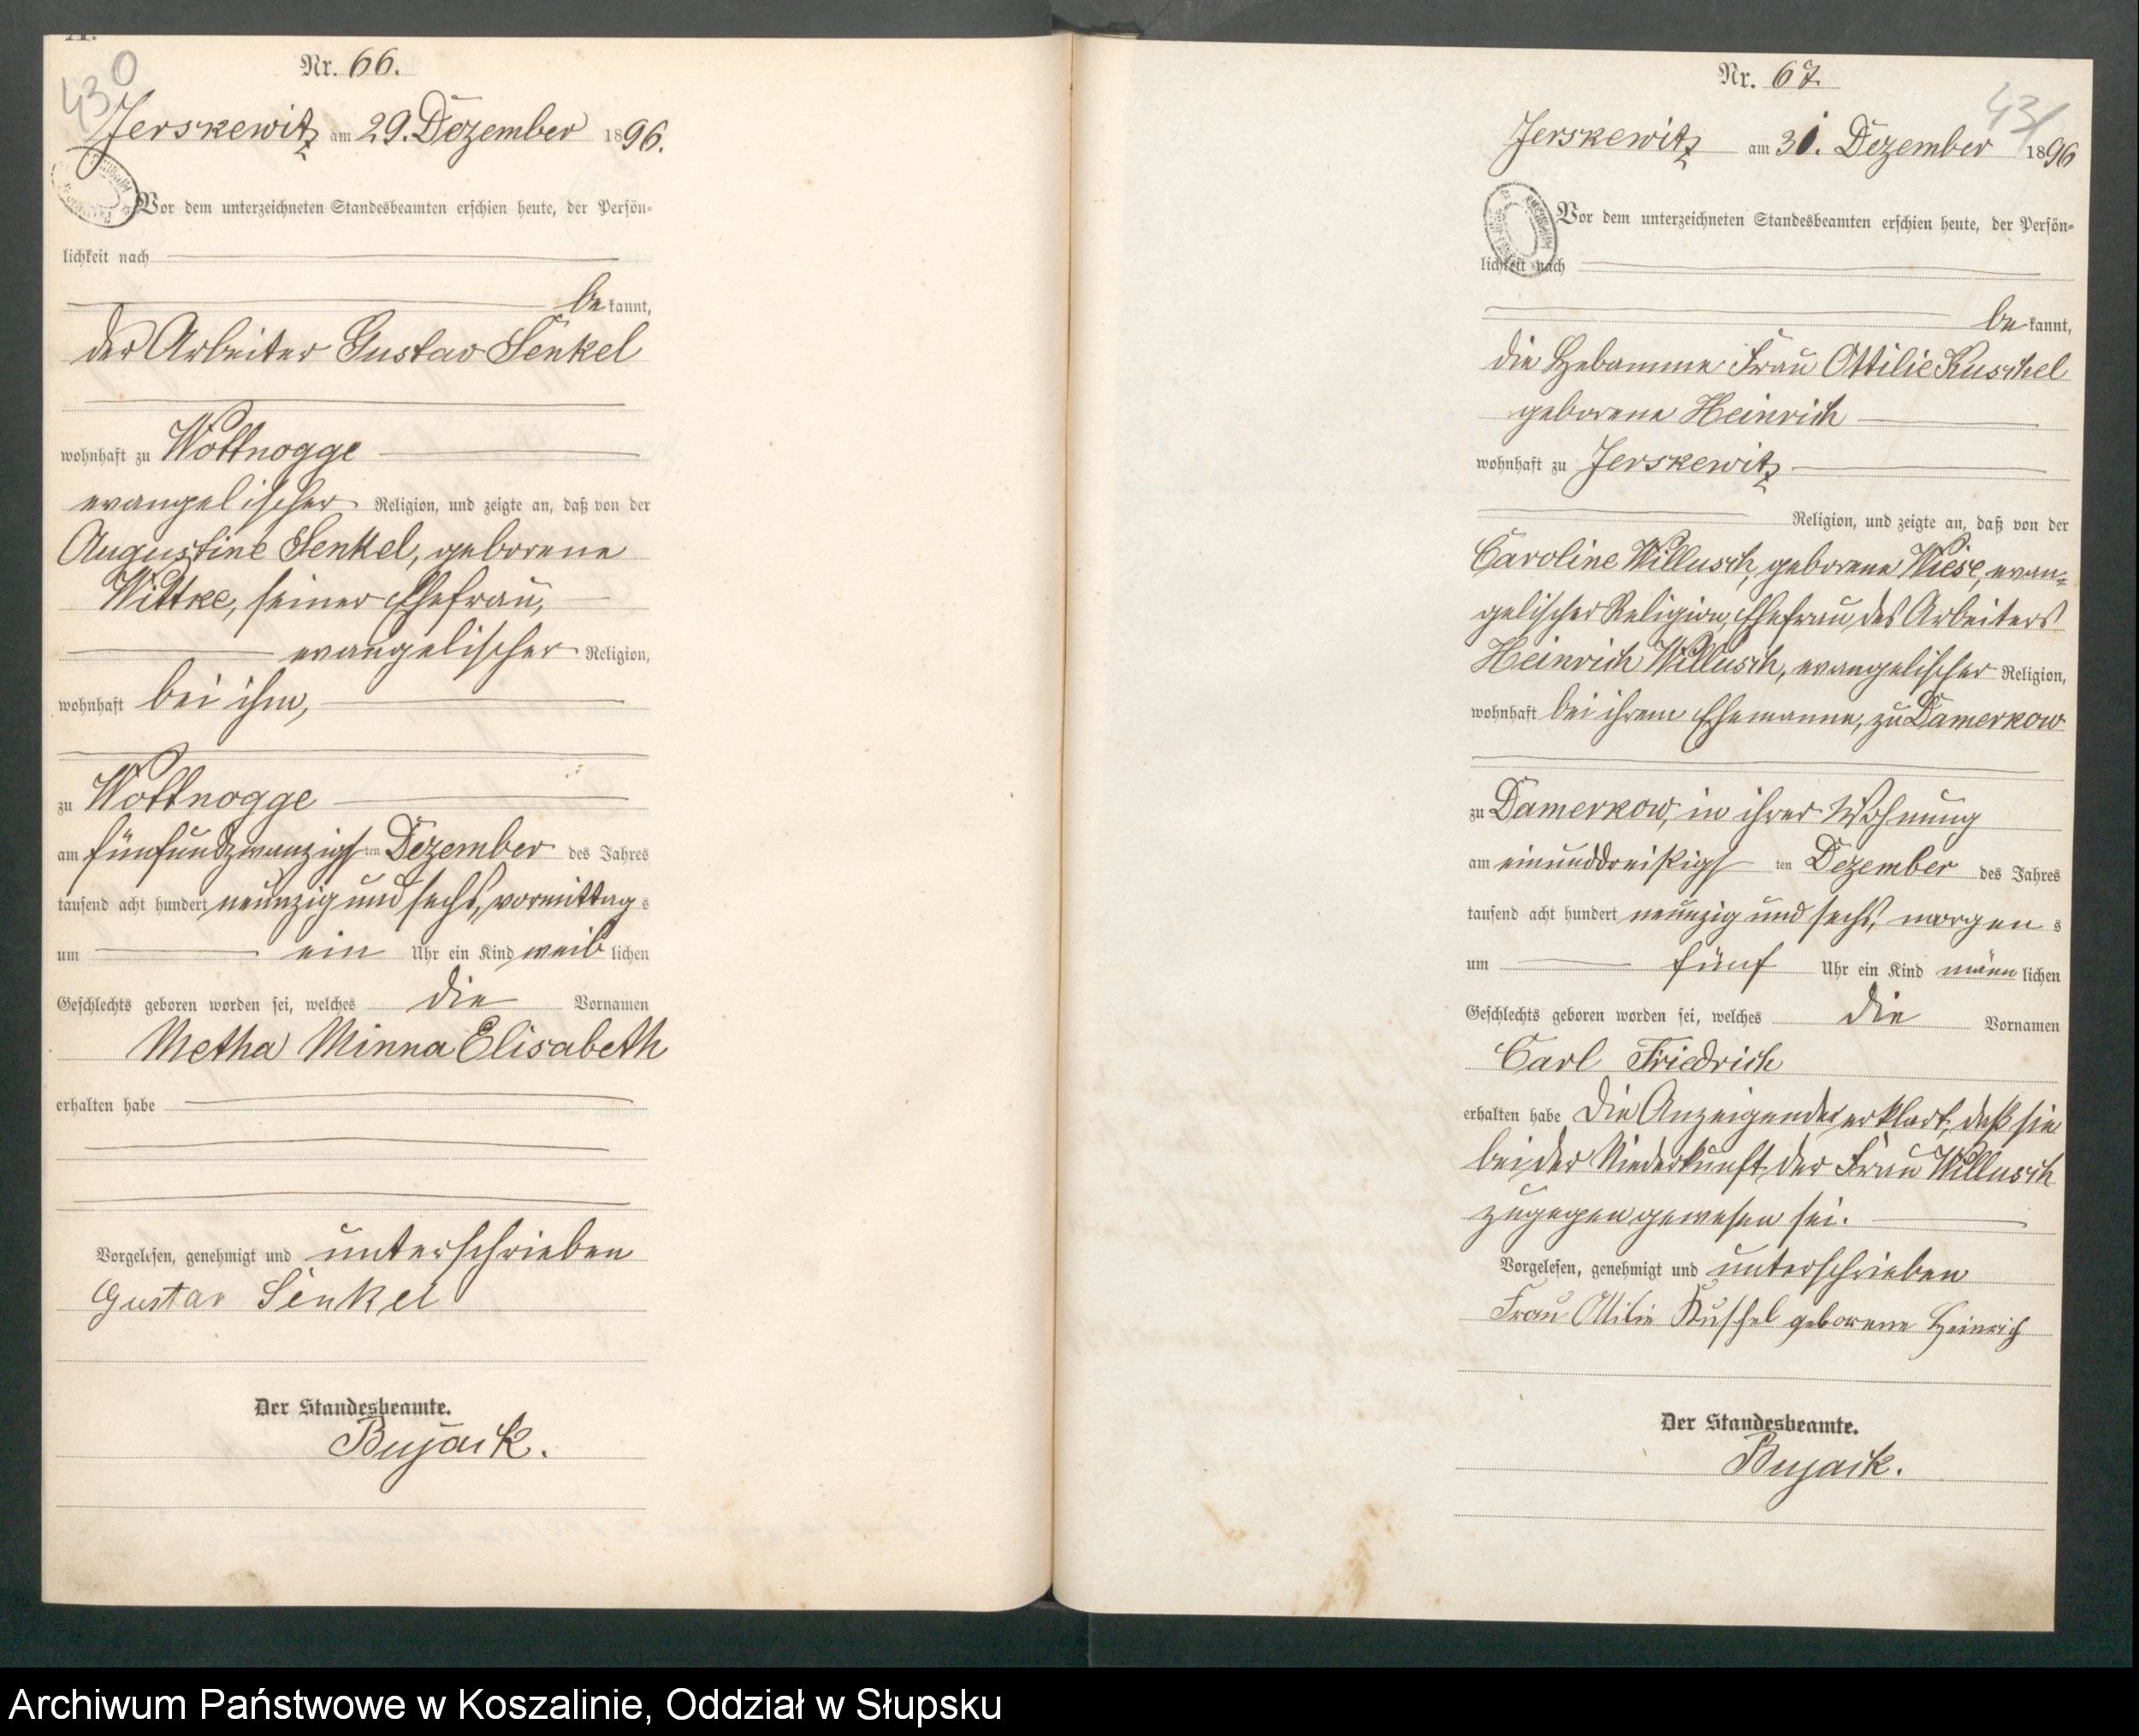 A.
430
Nr. 66.
Jerskewitz am 29. Dezember 1896.
Vor dem unterzeichneten Standesbeamten erschien heute, der Persön-
lichkeit nach
be kannt,
der Arbeiter Gustav Senkel
wohnhaft zu Wottnogge
evangelischer Religion, und zeigte an, daß von der
Augustine Senkel, geborene
Wittke, seiner Ehefrau,
evangelischer Religion,
wohnhaft bei ihm,
zu Wottnogge
am fünfundzwanzigsten Dezember des Jahres
tausend acht hundert neunzig und sechs, vormittags
um ein Uhr ein Kind weiblichen
Geschlechts geboren worden sei, welches die Vornamen
Metha Minna Elisabeth
erhalten habe
Vorgelesen, genehmigt und unterschrieben
Gustav Senkel
Der Standesbeamte.
Bujack.
431
Nr. 67.
Jerskewitz am 31. Dezember 1896
Vor dem unterzeichneten Standesbeamten erschien heute, der Persön-
lichkeit nach
be kannt,
die Hebamme Frau Ottilie Kuschel
geborene Heinrich
wohnhaft zu Jerskewitz
Religion, und zeigte an, daß von der
Caroline Willusch, geborene Wiese, evan-
gelischer Religion, Ehefrau des Arbeiters
Heinrich Willusch, evangelischer Religion,
wohnhaft bei ihrem Ehemanne, zu Damerkow
zu Damerkow, in ihrer Wohnung
am einunddreißigsten Dezember des Jahres
tausend acht hundert neunzig und sechs, morgens
um fünf Uhr ein Kind männlichen
Geschlechts geboren worden sei, welches die Vornamen
Carl Friedrich
erhalten habe Die Anzeigende erklärt, daß sie
bei der Niederkunft der Frau Willusch
zugegen gewesen sei.
Vorgelesen, genehmigt und unterschrieben
Frau Ottilie Kuschel geborene Heinrich
Der Standesbeamte.
Bujack.
Archiwum Państwowe w Koszalinie, Oddział w Słupsku